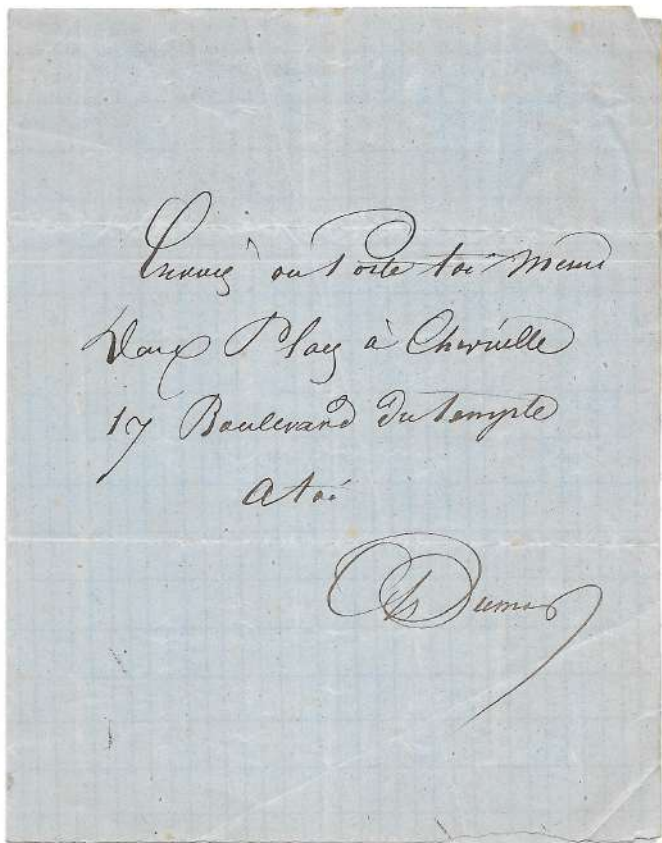 Envoie ou Porte toi même
Deux Places à Cherville
17 Boulevard du temple
A toi
A Dumas